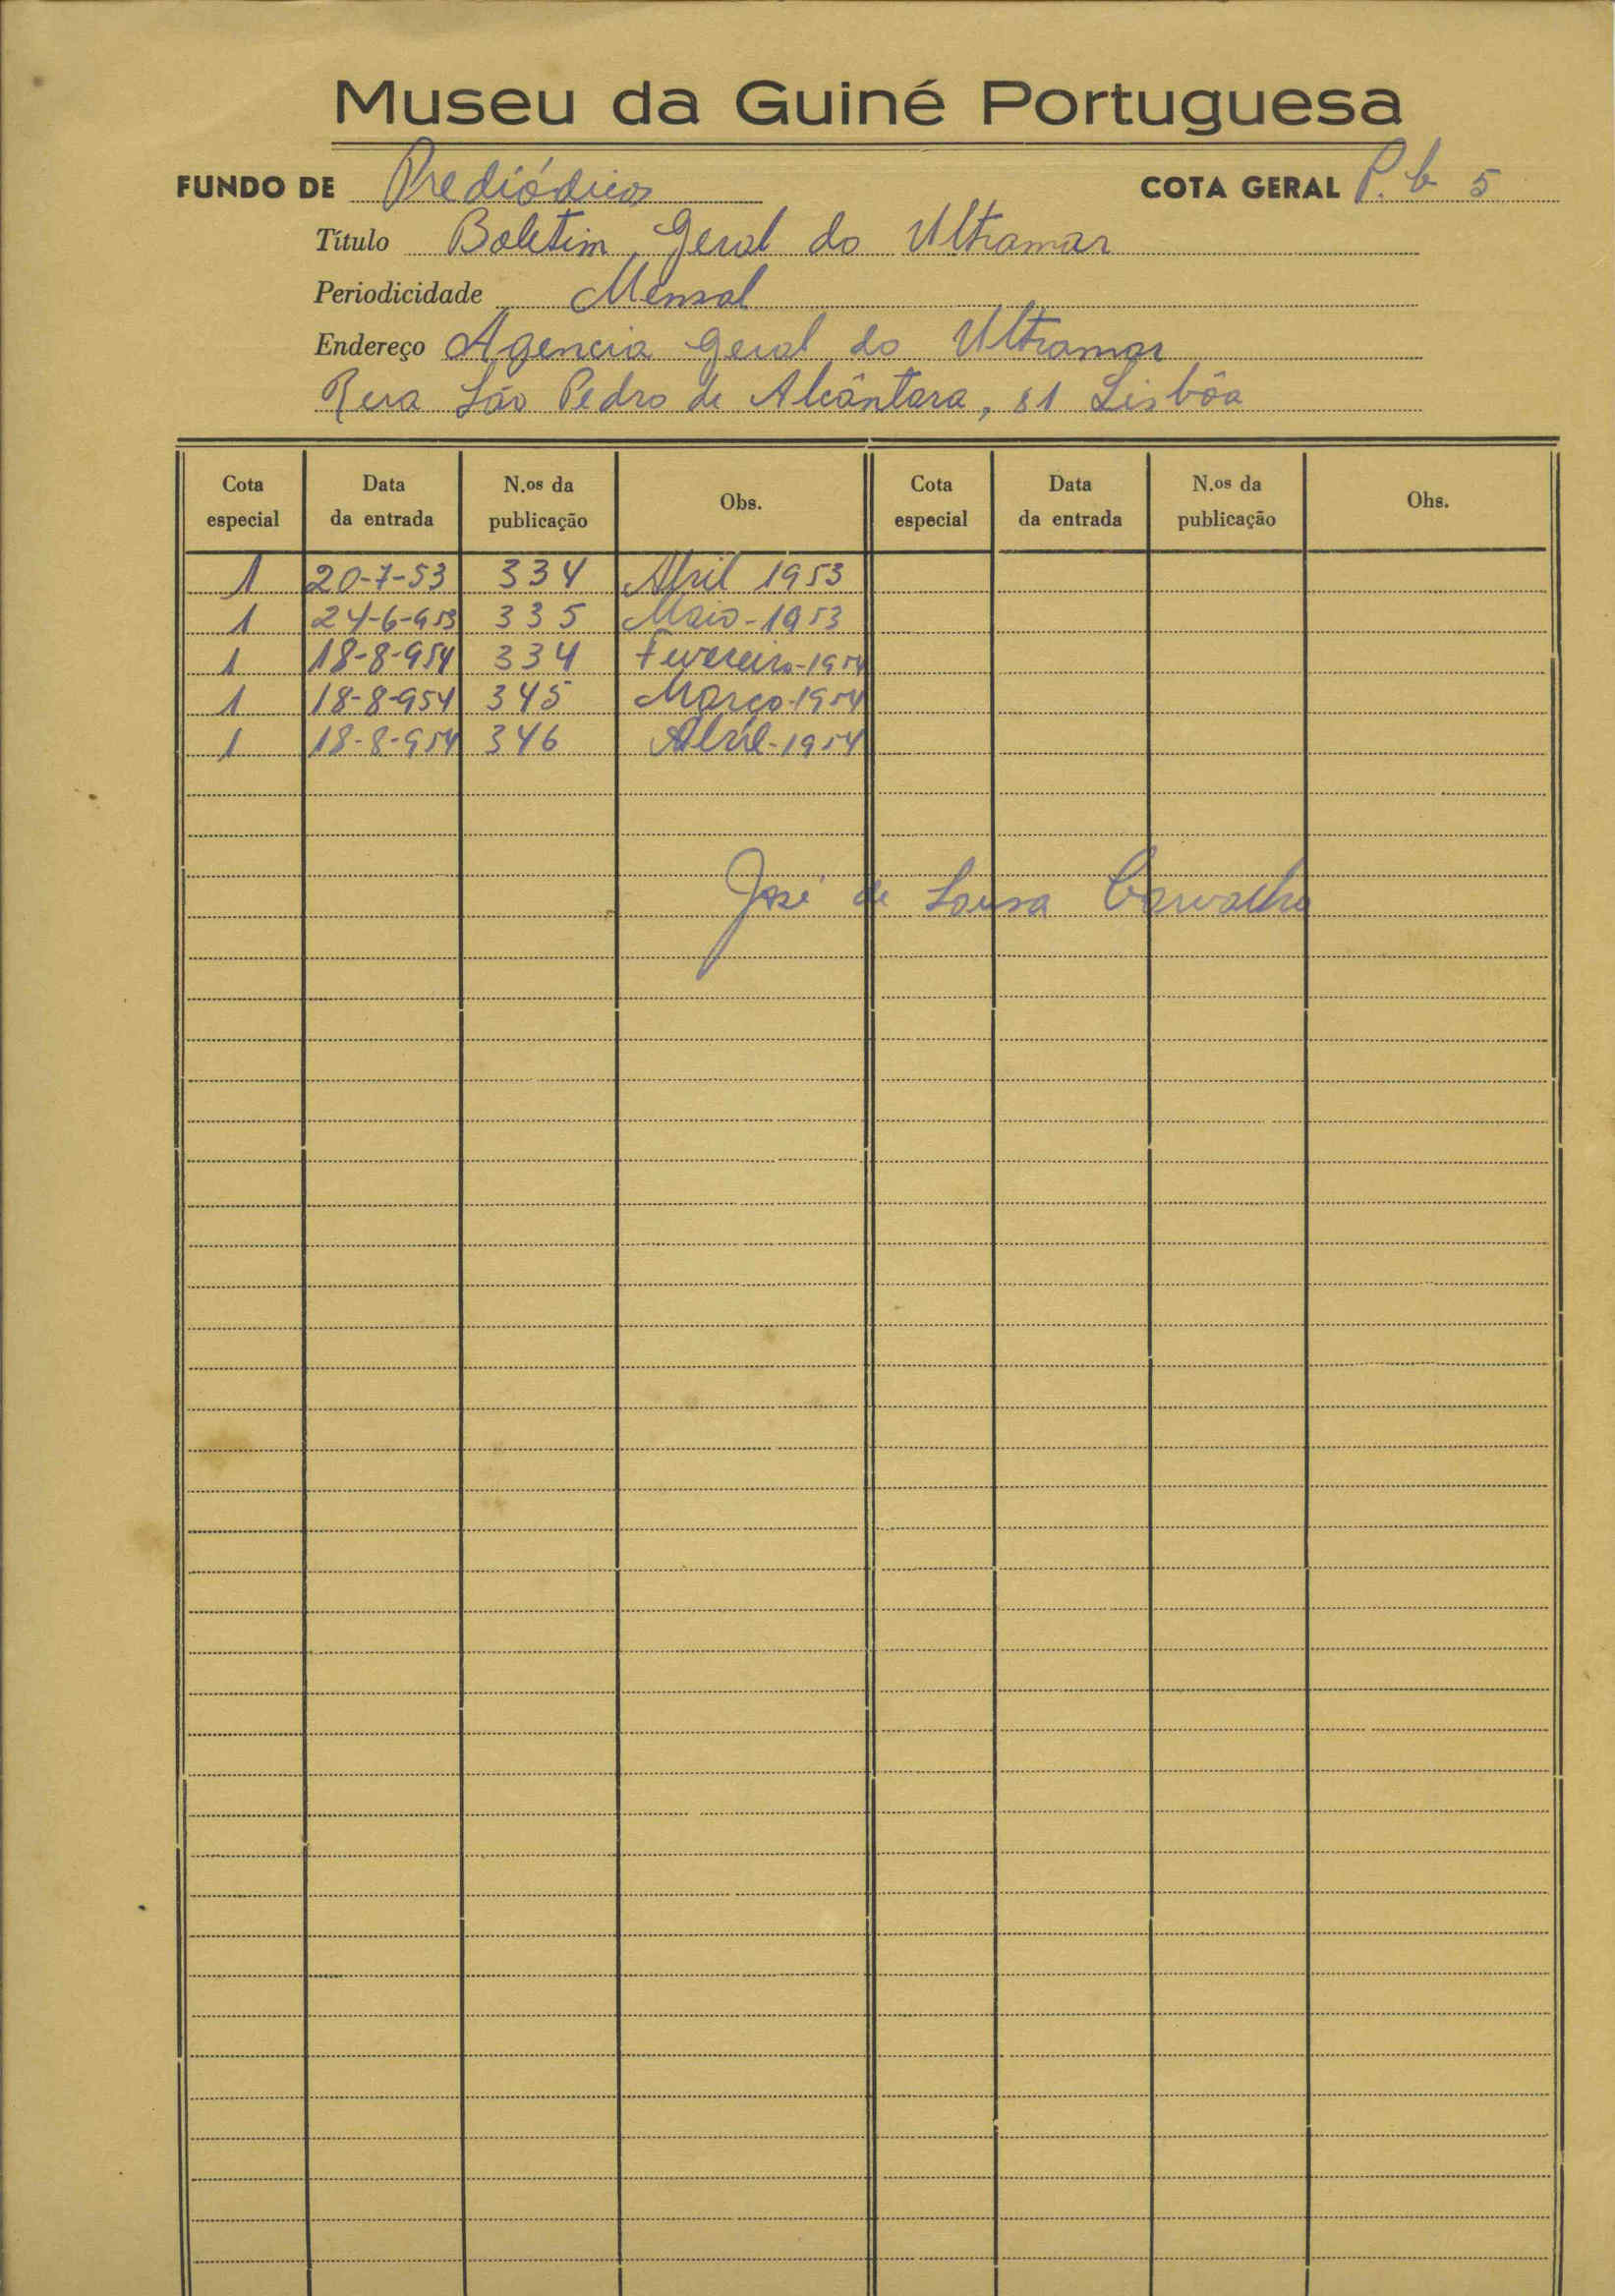 Museu da Guiné Portuguesa
FUNDO DE Prediódicos COTA GERAL P. b 5
Título Boletim Geral do Ultramar
Periodicidade Mensal
Endereço Agencia geral do Ultramar
Rua São Pedro de Alcântara, 81 Lisbôa
Cota especial Data da entrada N.os da publicação Obs. Cota especial Data da entrada N.os da publicação Obs.
1 20-7-53 334 Abril 1953
1 24-6-953 335 Maio-1953
1 18-8-954 334 Fevereiro-1954
1 18-8-954 345 Março-1954
1 18-8-954 346 Abril-1954
José de Sousa Carvalho